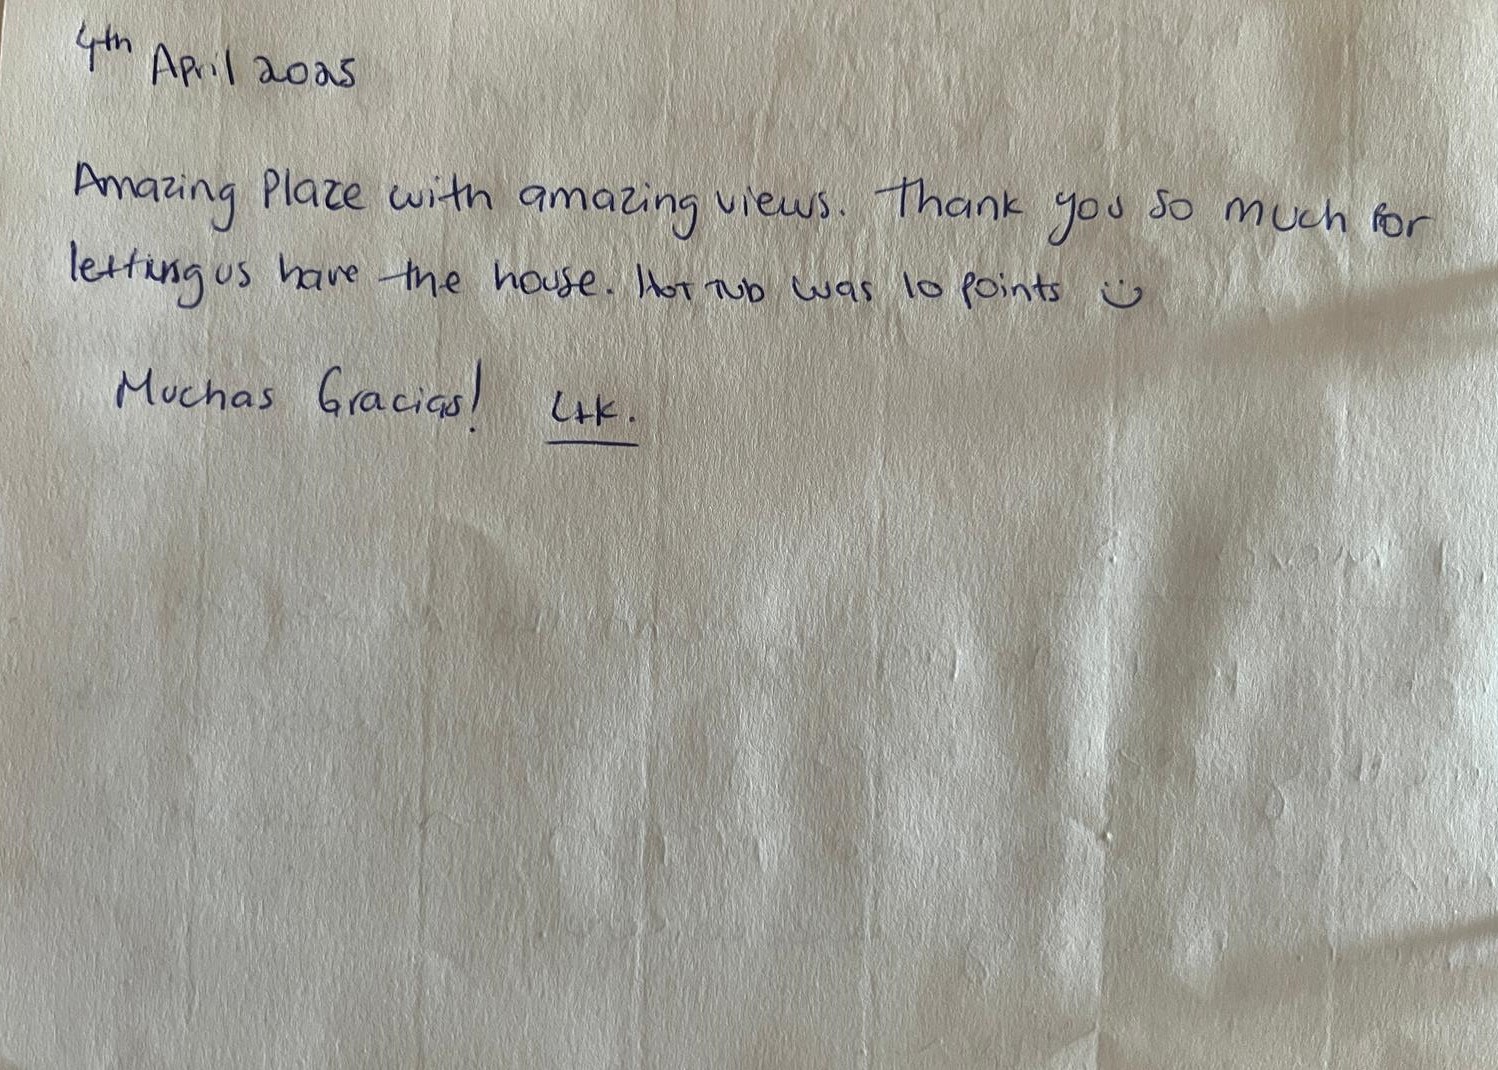 4th April 2025
Amazing Plaze with amazing views. Thank you so much for
letting us have the house. Hot Tub was 10 points :)
Muchas Gracias! L+K.